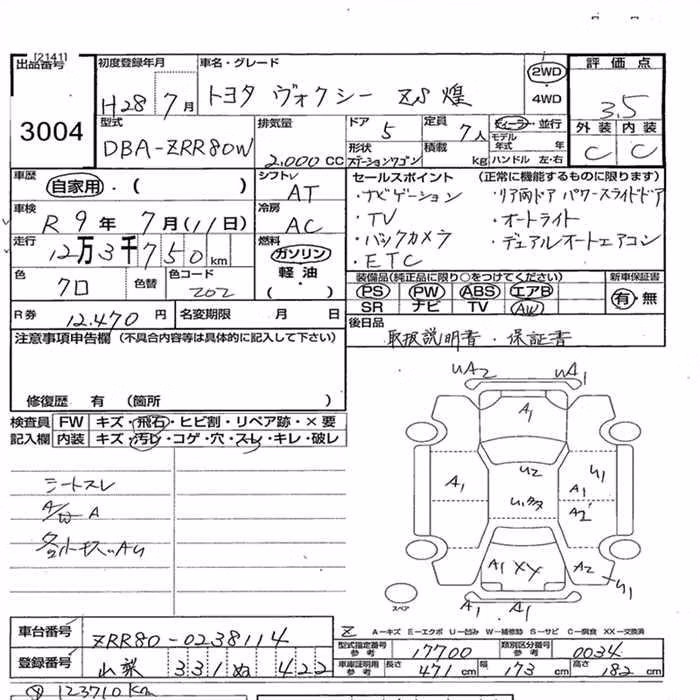 [2141]
出品番号
3004
初度登録年月
H28年7月
車名・グレード
トヨタ ヴォクシー ZS 煌
2WD
・
4WD
評価点
3.5
外装 内装
C C
型式
DBA-ZRR80W
排気量
2,000 CC
ドア
5
定員
7人
形状
ステーションワゴン
積載
kg
ディーラー・並行
モデル年式 年
ハンドル 左・右
車歴
自家用・( )
シフト
AT
セールスポイント (正常に機能するものに限ります)
・ナビゲーション ・リア両ドア パワースライドドア
・TV ・オートライト
・バックカメラ ・デュアルオートエアコン
・ETC
車検
R 9年 7月(11日)
冷房
AC
走行
12万3千750 km
燃料
ガソリン
軽油
( ・ )
色
クロ
色替
色コード
202
装備品(純正品に限り○をつけてください)
新車保証書
PS PW ABS エアB
SR ナビ TV AW
有・無
R券
12,470 円
名変期限 月 日
後日品
取扱説明書・保証書
注意事項申告欄 (不具合内容等は具体的に記入して下さい)
修復歴 有 (箇所 )
検査員記入欄
FW キズ・飛石・ヒビ割・リペア跡・×要
内装 キズ・汚レ・コゲ・穴・スレ・キレ・破レ
シートスレ
A/W A
UA2 UA1
A1
U2
A1
U1
A1
A2'
U1多タ
A1 XY
A2
U1
A1 A1
スペア
車台番号
ZRR80-0238114
登録番号
山梨 331 ぬ 422
A―キズ E―エクボ U―凹み W―補修跡 S―サビ C―腐食 XX―交換済
型式指定番号
参考
17700
類別区分番号
参考
0034
車庫証明用
参考
長さ 471cm
幅 173cm
高さ 182cm
123710Km